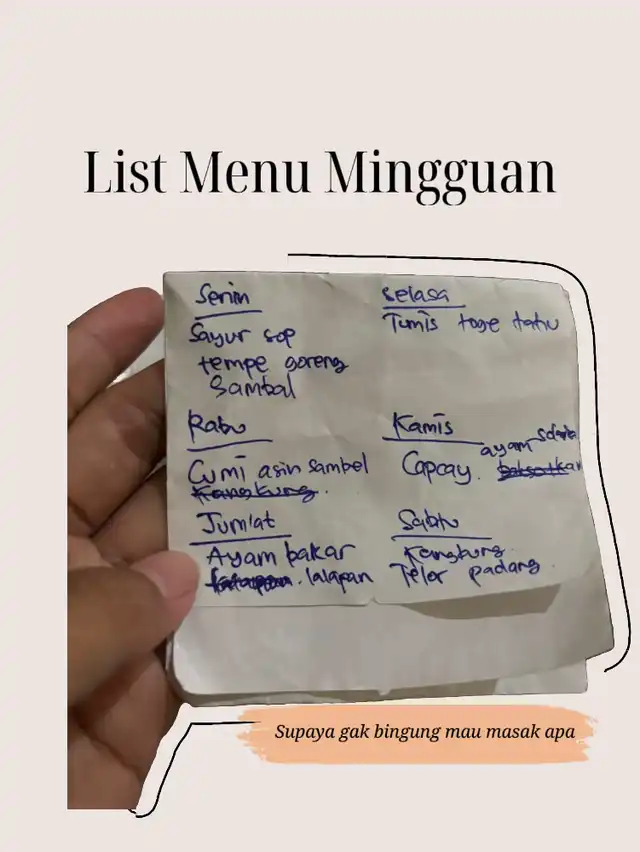 List Menu Mingguan
Senin
Sayur sop
tempe goreng
Sambal
Selasa
Tumis toge tahu
Rabu
Cumi asin sambel
Kangkung.
Kamis
Capcay. ayam
Jum'at
Ayam bakar
lalapan
Sabtu
Kangkung
Telor padang
Supaya gak bingung mau masak apa